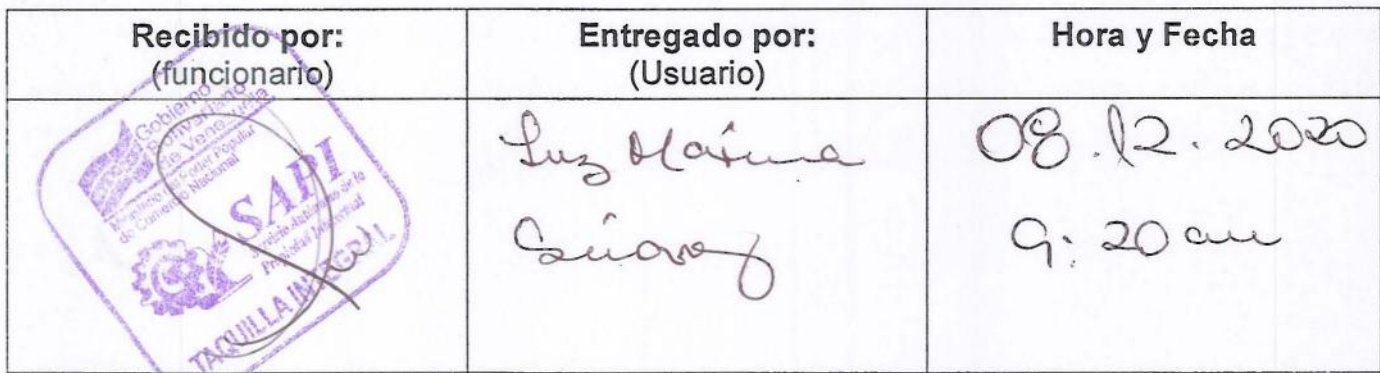 Recibido por:
(funcionario)
Entregado por:
(Usuario)
Hora y Fecha
Gobierno
Bolivariano
de Venezuela
Ministerio del Poder Popular
de Comercio Nacional
SAPI
Servicio Autónomo de la
Propiedad Intelectual
TAQUILLA INTEGRAL
Luz Marina
Suárez
08.12.2020
9:20 am